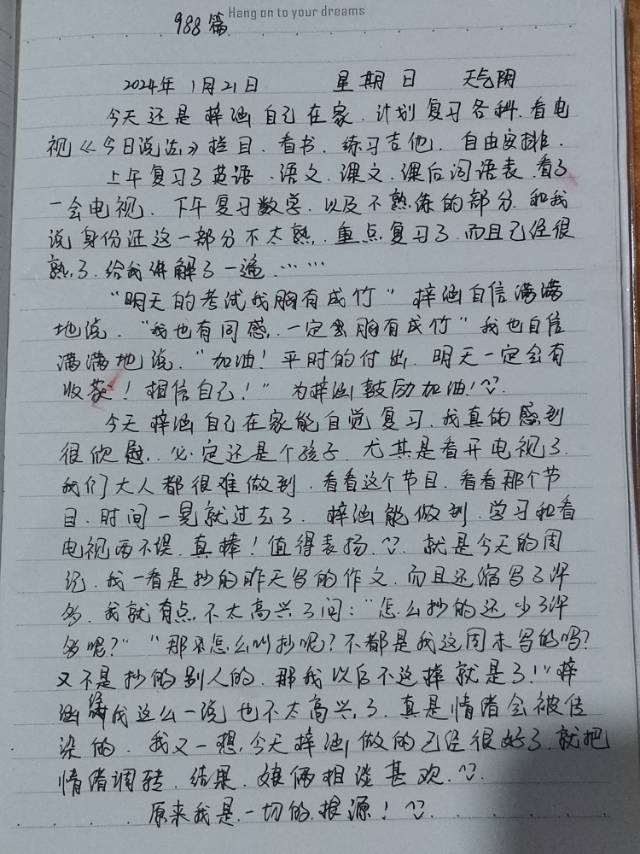 Hang on to your dreams
988篇
2024年 1月21日 星期日 天气阴
今天还是梓涵自己在家.计划复习各科.看电
视《今日说法》栏目.看书.练习吉他.自由安排.
上午复习了英语.语文.课文.课后词语表.看了
一会电视.下午复习数学.以及不熟练的部分.和我
说身份证这一部分不太熟.重点复习了.而且已经很
熟了.给我讲解了一遍……
"明天的考试我胸有成竹"梓涵自信满满
地说."我也有同感.一定会胸有成竹"我也自信
满满地说."加油!平时的付出.明天一定会有
收获!相信自己!"为梓涵鼓励加油!
今天梓涵自己在家能自觉复习.我真的感到
很欣慰.必定还是个孩子.尤其是看开电视了.
我们大人都很难做到.看看这个节目.看看那个节
目.时间一晃就过去了.梓涵能做到.学习和看
电视两不误.真棒!值得表扬.就是今天的周
记.我一看是抄的昨天写的作文.而且还缩写了许
多.我就有点不太高兴了问:"怎么抄的还少了许
多呢?""那怎么叫抄呢?不都是我这周末写的吗?
又不是抄的别人的.那我以后不这样就是了!"梓
涵我这么一说也不太高兴了.真是情绪会被传
染的.我又一想.今天梓涵做的已经很好了.就把
情绪调转.结果.娘俩相谈甚欢.
原来我是一切的根源!